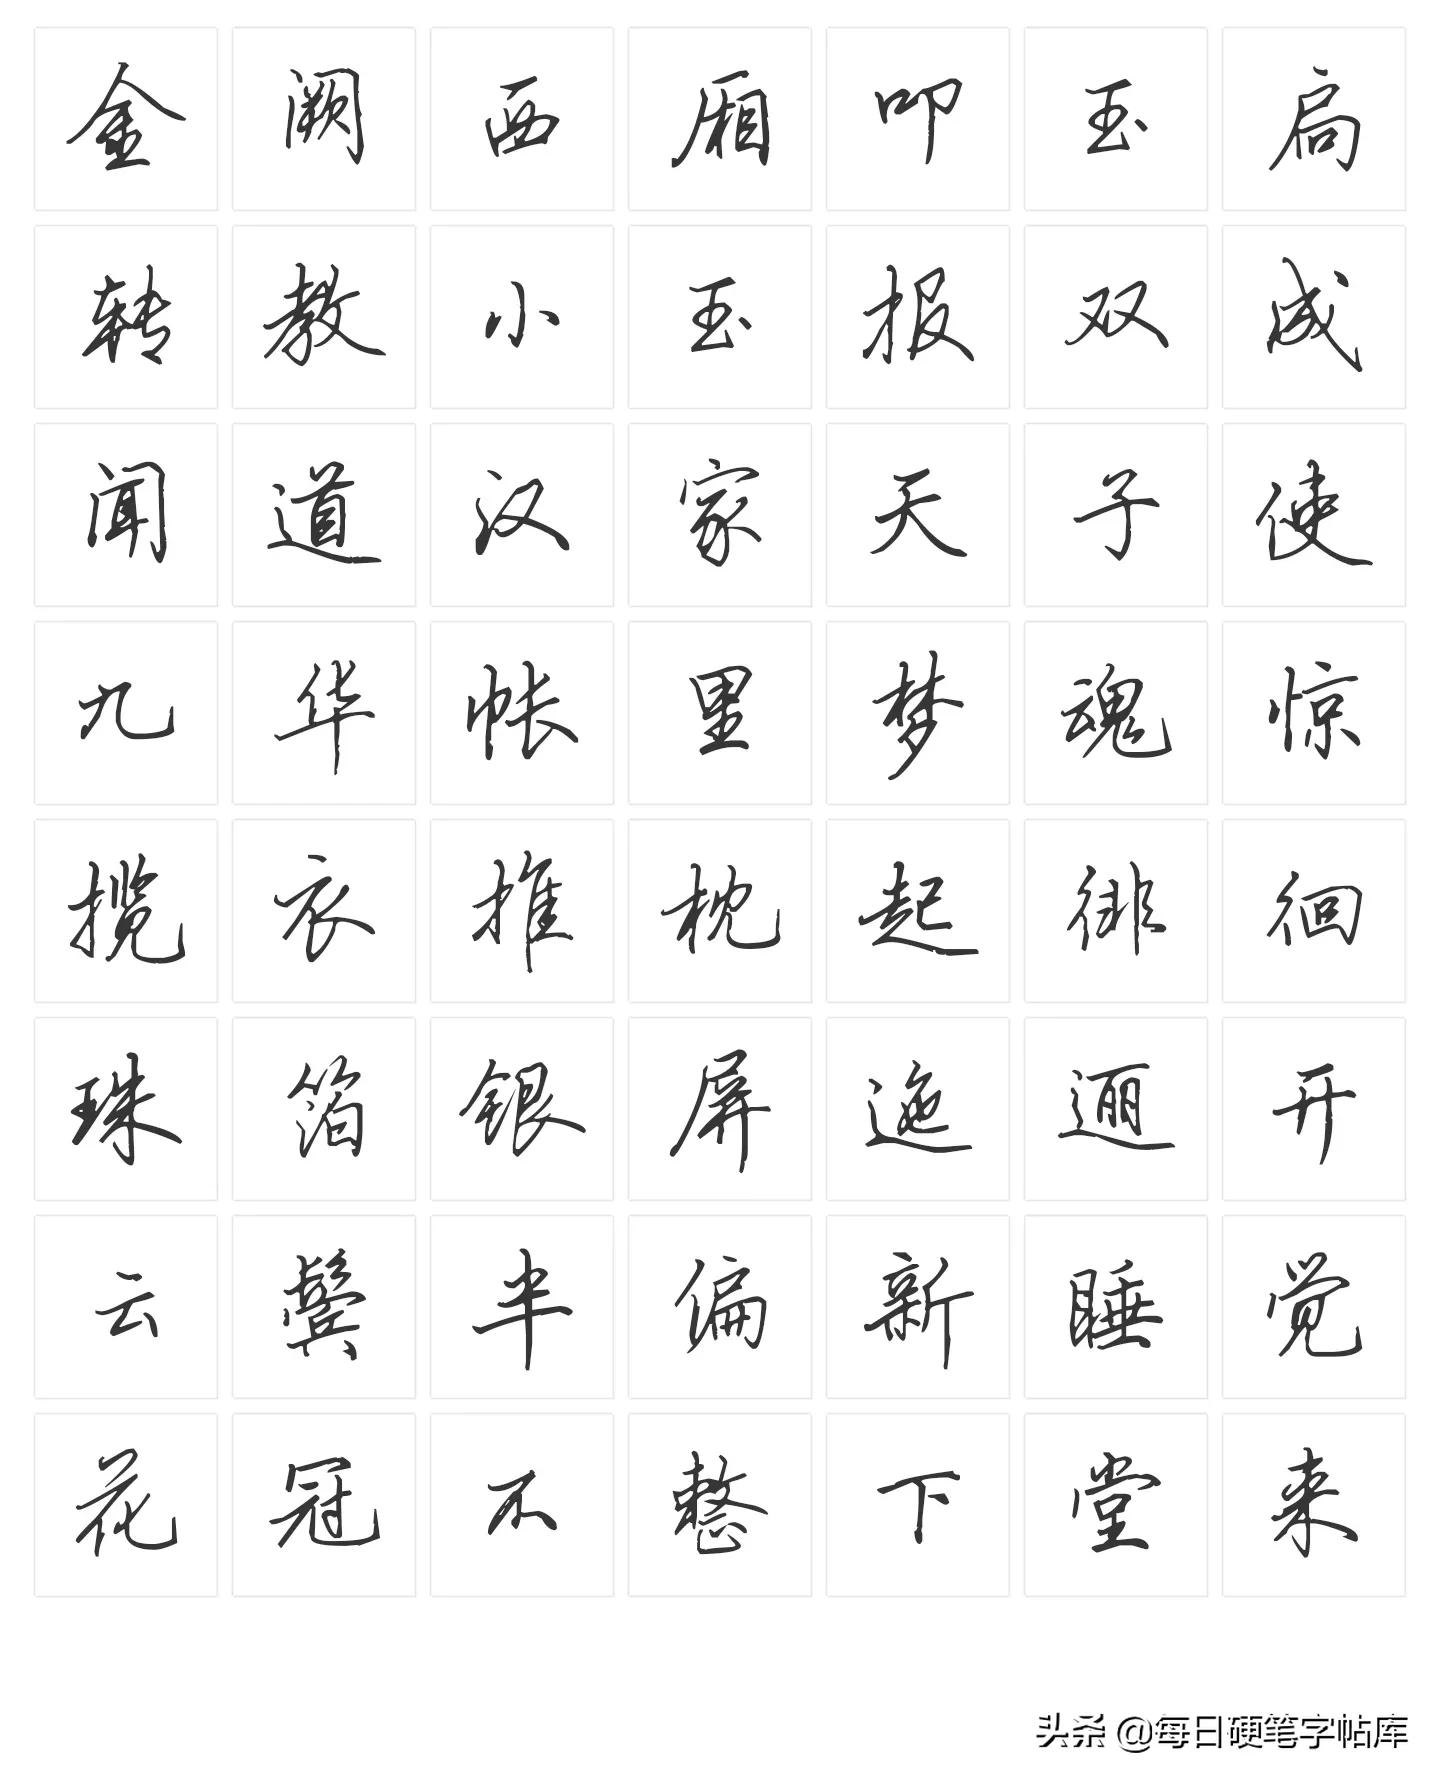 金阙西厢叩玉扃
转教小玉报双成
闻道汉家天子使
九华帐里梦魂惊
揽衣推枕起徘徊
珠箔银屏迤逦开
云鬓半偏新睡觉
花冠不整下堂来
头条 @每日硬笔字帖库